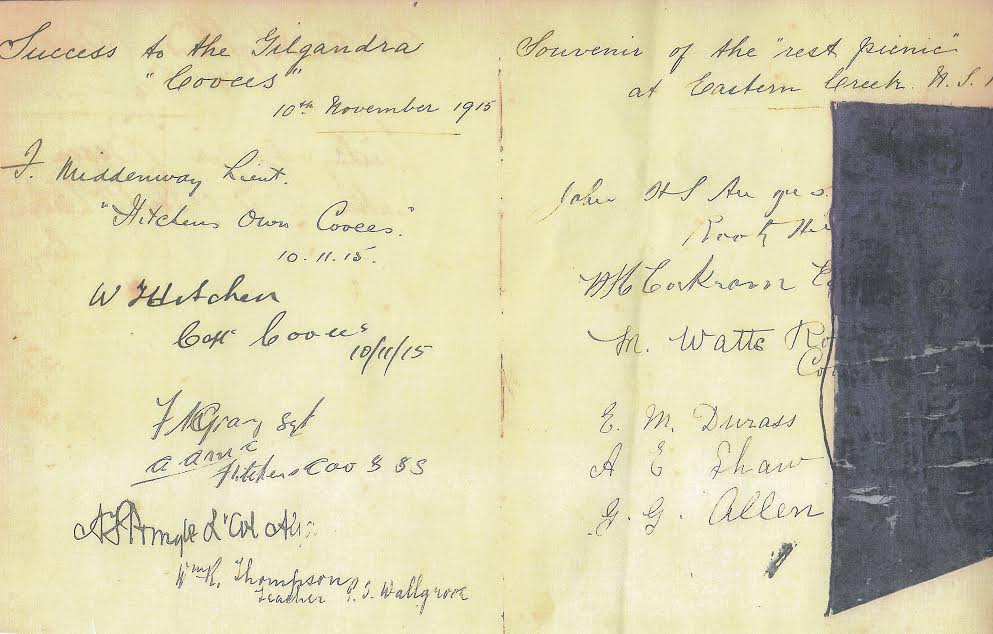 Success to the Gilgandra
"Cooees"
10th November 1915
F. Middenway Lieut.
"Hitchens Own Cooees."
10.11.15.
W Hitchen
Capt Cooees
10/11/15
Sgt
A A M C
Hitchens Coo
Wm R. Thompson
Teacher P.S. Wallgrove
Souvenir of the "rest picnic"
at Eastern Creek. N.S.
John H S
Rooty
W H Corkram
M. Watts Ro
Co
E. M. Durass
A E Shaw
G. G. Allen